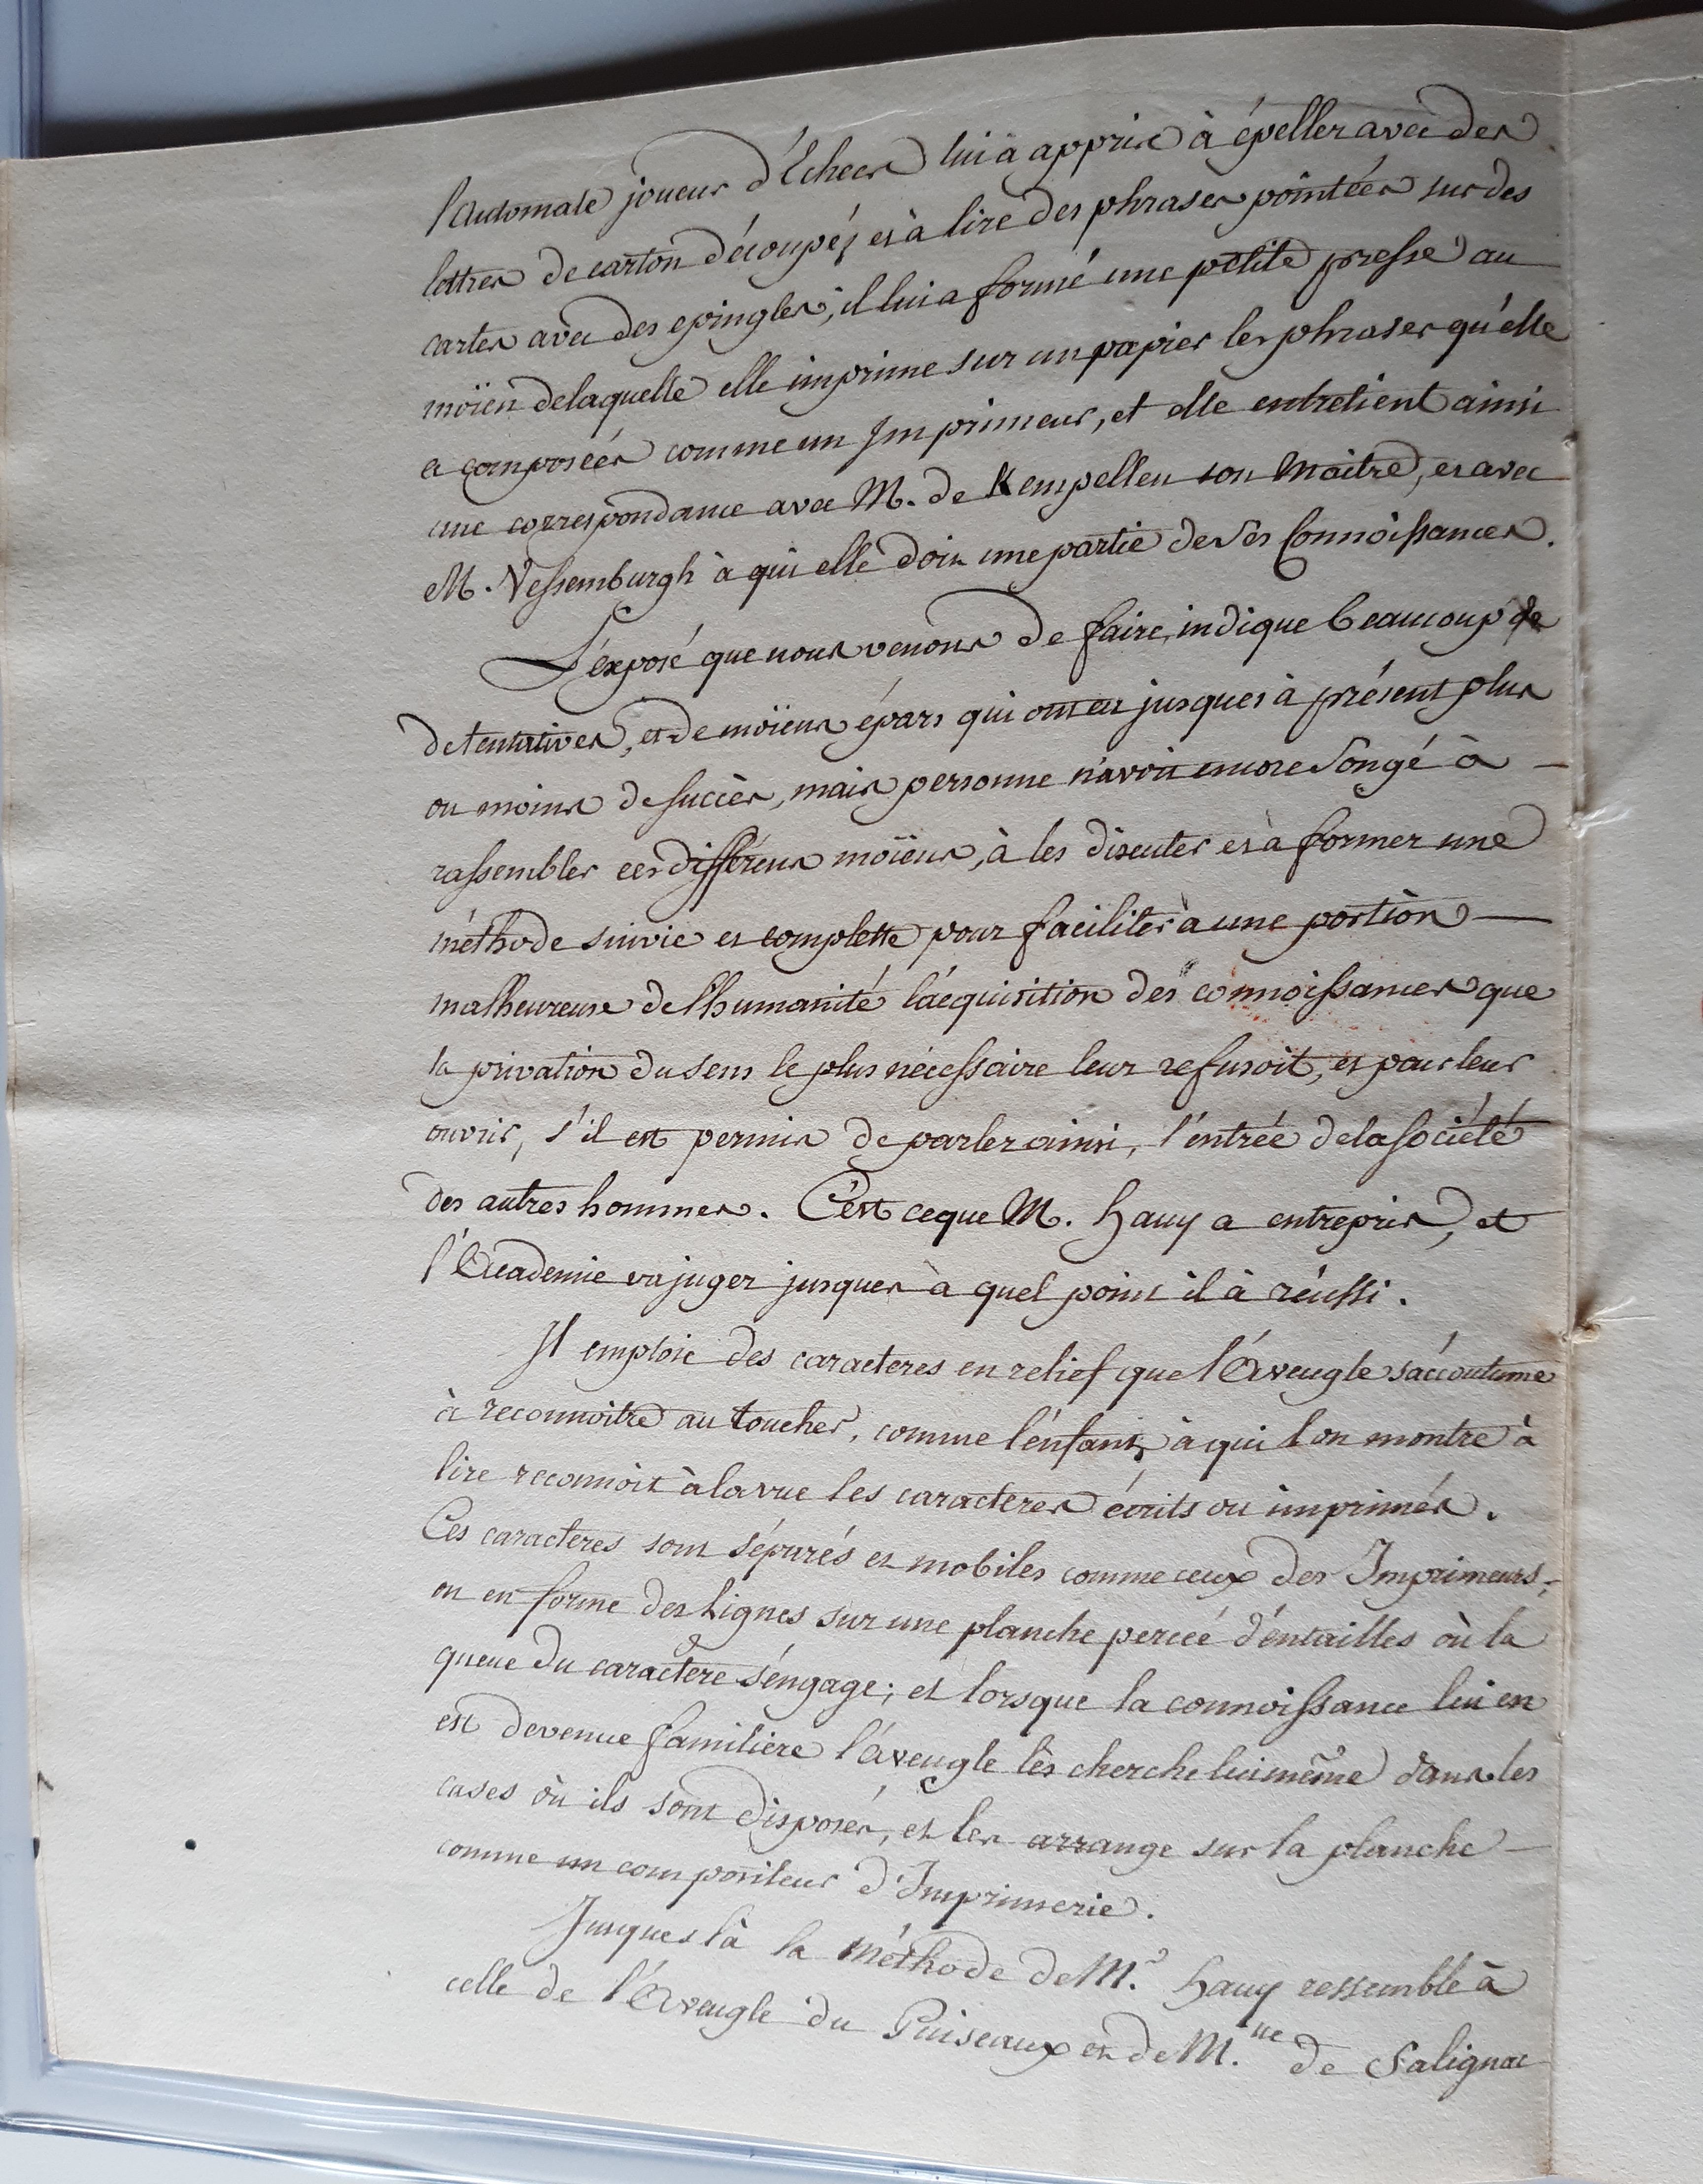 l'Automate joueur d'Echecs lui a appris à épeller avec des
lettres de carton découpés et à lire des phrases pointées sur des
cartes avec des epingles; il lui a formé une petite presse au
moïen delaquelle elle imprime sur un papier les phrases qu'elle
a composées comme un Imprimeur, et elle entretient ainsi
une correspondance avec M. de Kempellen son Maitre, et avec
M. Vessemburgh à qui elle doit une partie de ses Connoissances.
L'éxposé que nous venons de faire, indique beaucoup de
de tentatives, et de moïens épars qui ont eu jusques à présent plus
ou moins de succès, mais personne n'avoit encore songé à
rassembler ces différens moïens, à les discuter et à former une
méthode suivie et complette pour faciliter à une portion
malheureuse de l'humanité l'acquisition des connoissances que
la privation du sens le plus nécessaire leur refusoit, et pour leur
ouvrir, s'il est permis de parler ainsi, l'entrée de la société
des autres hommes. C'est ce que M. hauy a entrepris, et
l'Academie va juger jusques à quel point il à réussi.
Il emploie des caracteres en relief que l'Aveugle s'accoutume
à reconnoitre au toucher, comme l'enfant à qui l'on montre à
lire reconnoit à la vue les caracteres écrits ou imprimés.
Ces caracteres sont séparés et mobiles comme ceux des Imprimeurs;
on en forme des Lignes sur une planche percée d'entailles où la
queue du caractere s'engage; et lorsque la connoissance lui en
est devenue familiere l'aveugle les cherche lui même dans les
cases où ils sont disposés, et les arrange sur la planche
comme un compositeur d'Imprimerie.
Jusques là la Méthode de M.r hauy ressemble à
celle de l'Aveugle du Puiseaux et de M.lle de Salignac